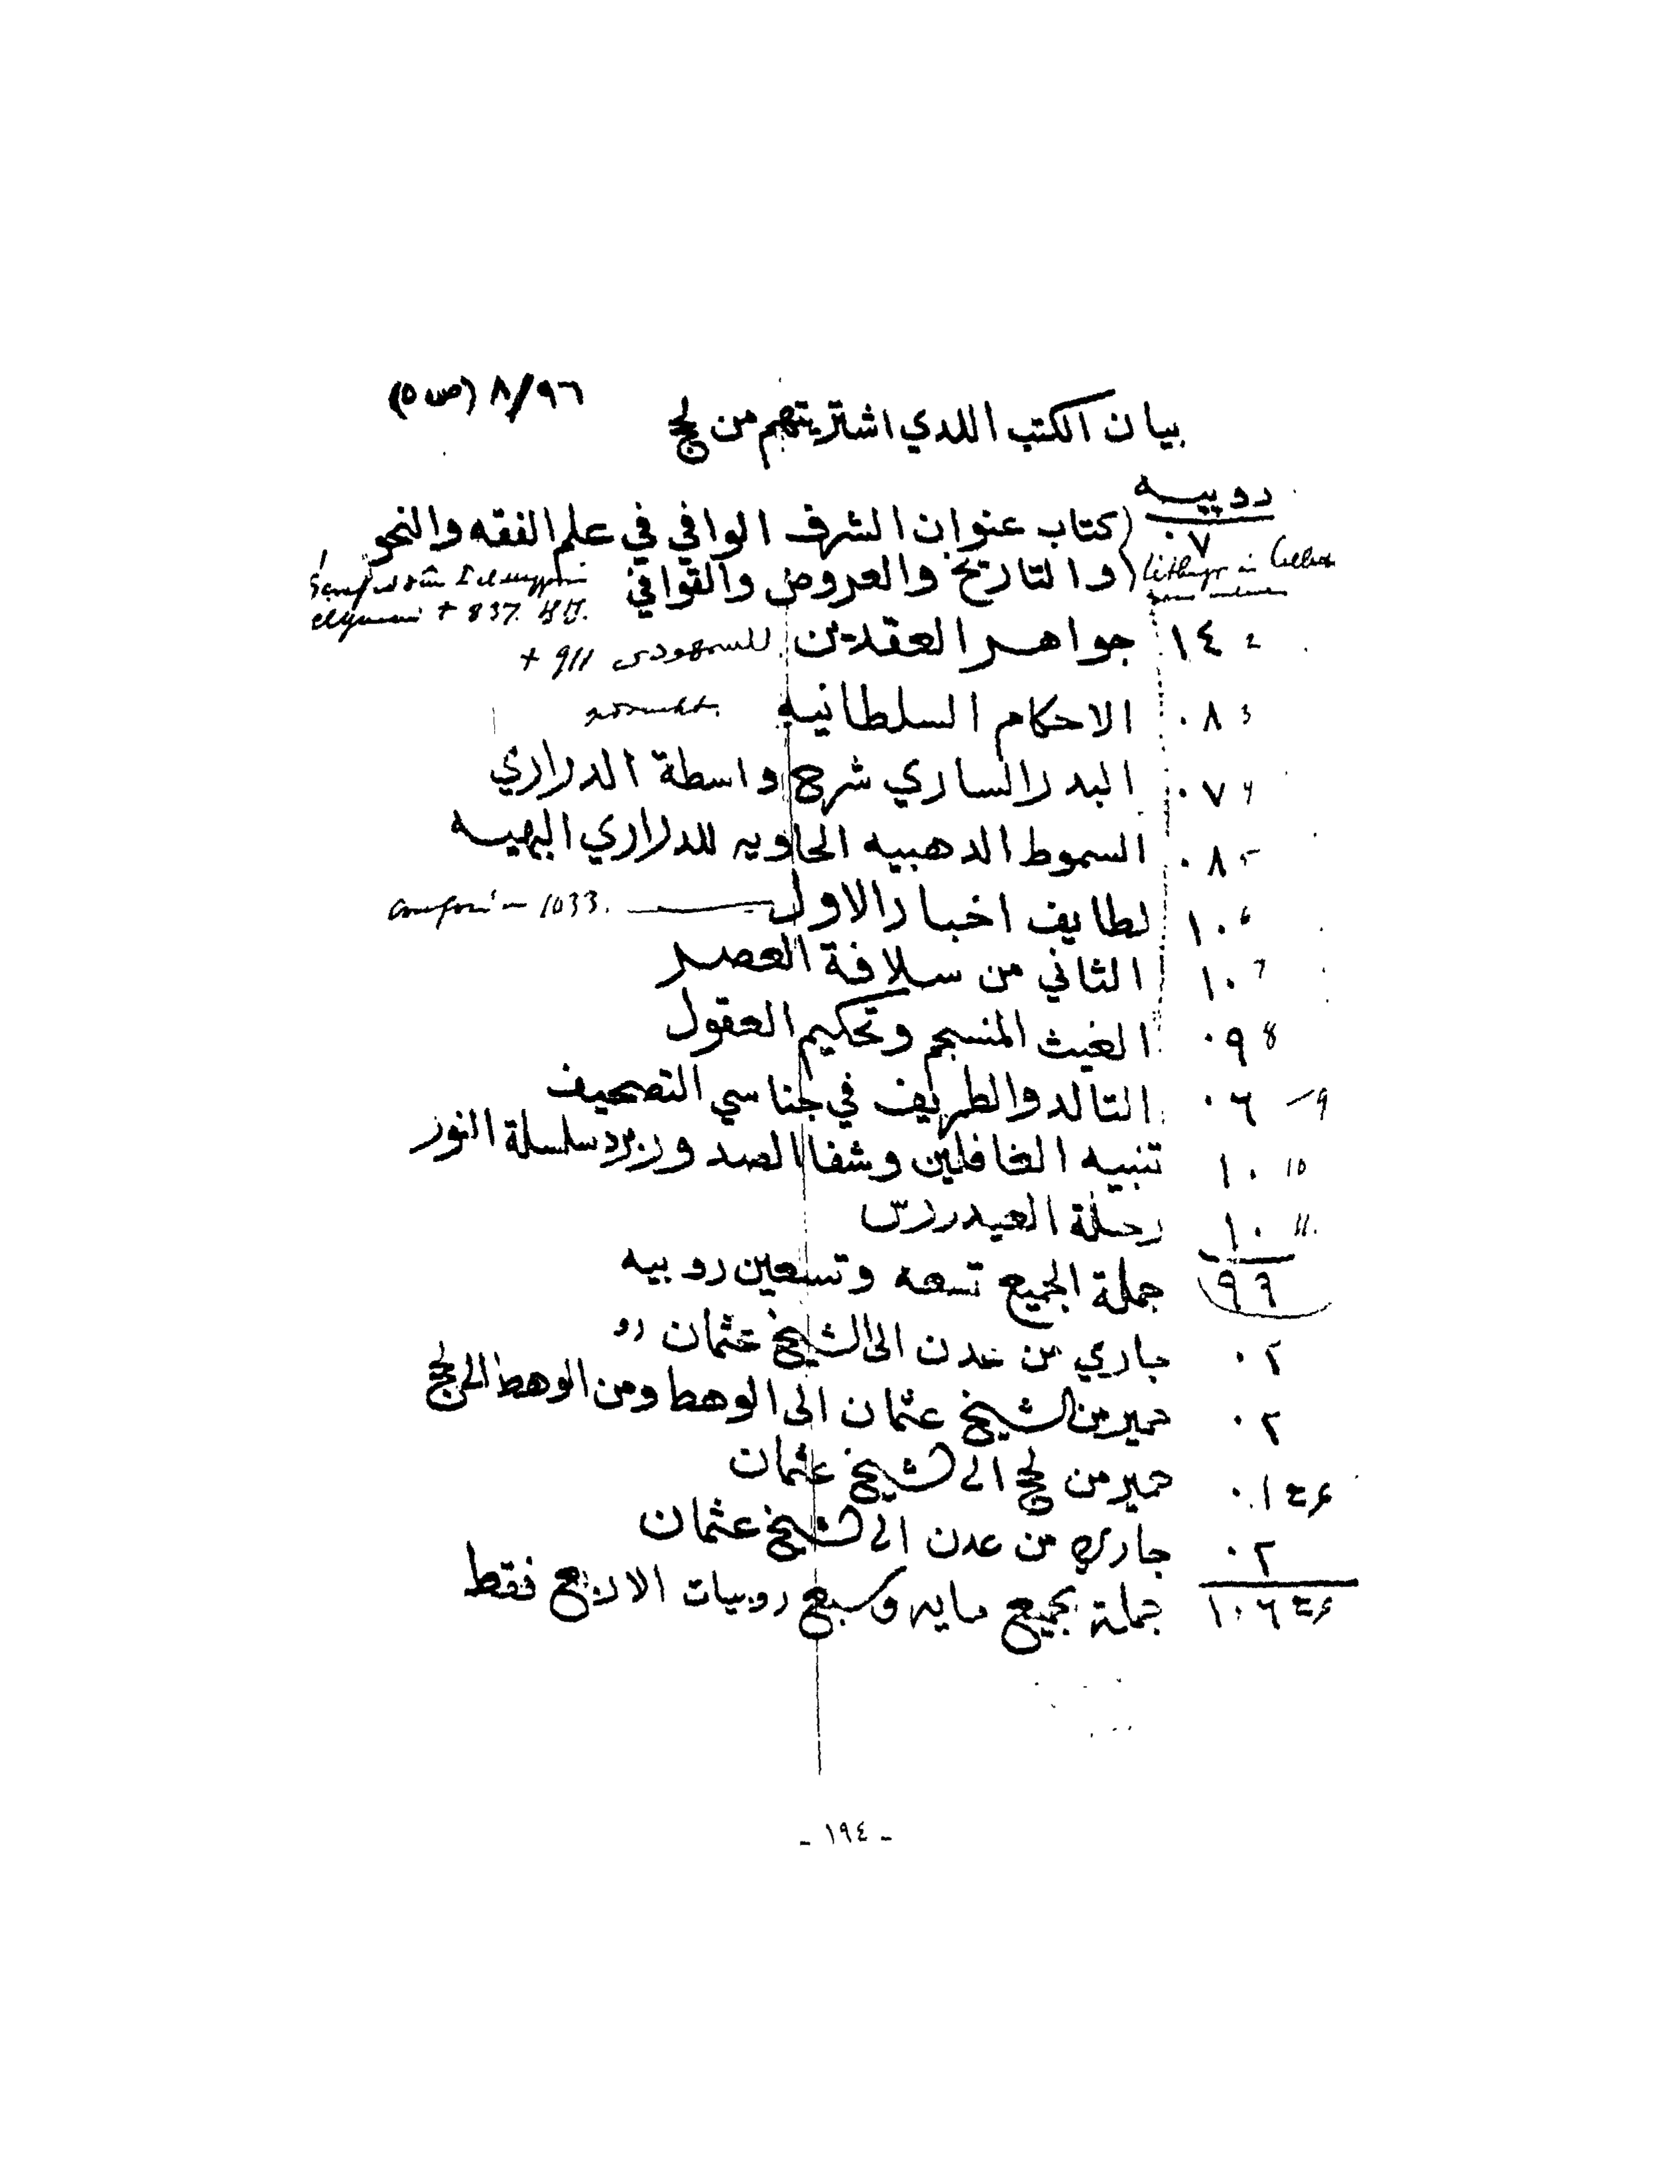 ٨/٩٦ (ص ٥)
بيان الكتب اللدي اشتريتهم من لحج
روپيه
٠٧ (كتاب عنوان الشرف الوافي في علم الفقه والنحو
(والتاريخ والعروض والقوافي
+ 837
2 ١٤ جواهر العقدين للسمهودى 911 +
3 ٠٨ الاحكام السلطانيه
4 ٠٧ البدر الساري شرح واسطة الدراري
5 ٠٨ السموط الدهبيه الحاويه للدراري البهيه
6 ١٠ لطايف اخبار الاول 1033.
7 ١٠ الثاني من سلافة العصر
8 ٠٩ الغيث المنسجم وتحكيم العقول
9 ٠٦ التالد والطريف في جناسي التصحيف
10 ١٠ تنبيه الغافلين وشفا الصدور برد سلسلة النور
11. ١٠ رحلة العيدروس
٩٩ جملة الجميع تسعه وتسعين روبيه
٠٢ جاري من عدن الى الشيخ عثمان رو
٠٢ حمير من الشيخ عثمان الى الوهط ومن الوهط الى لحج
٠١ حمير من لحج الى شيخ عثمان
٠٢ جاري من عدن الى شيخ عثمان
١٠٦ جملة جميع مايه وسبع روبيات الا ربع فقط
- ١٩٤ -